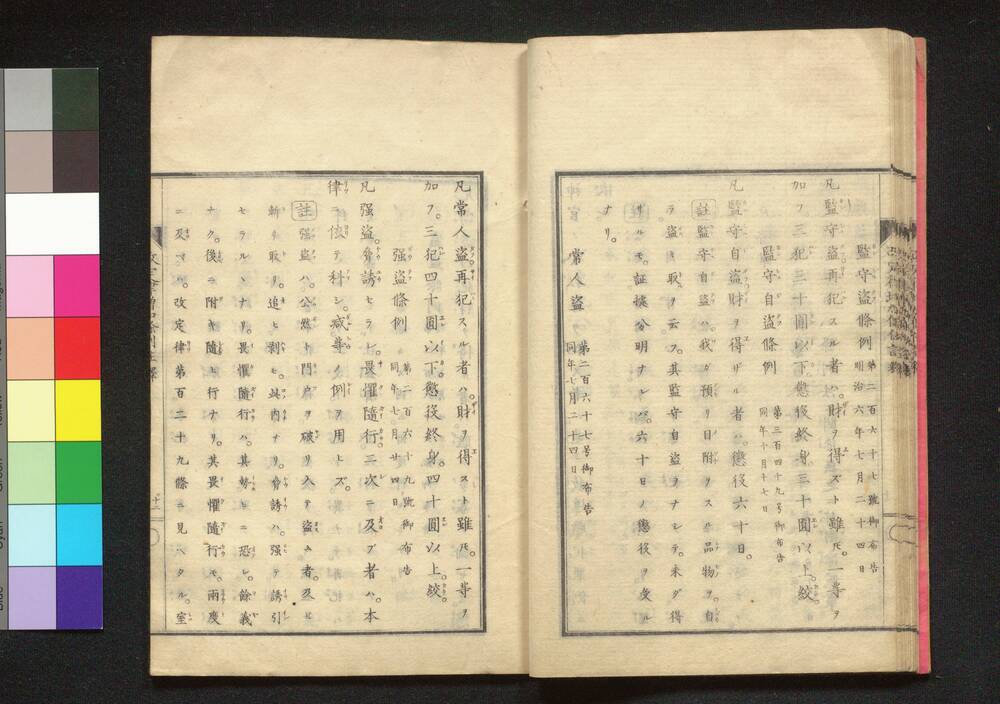 監守盗條例 第二百六十七號御布告
明治六年七月二十四日
凡監守盗再犯スル者ハ。財ヲ得ズト雖𪜈。一等ヲ
加フ。三犯三十圓以下懲役終身三十圓以上。絞。
監守自盗條例 第三百四十九号御布告
同年十月十七日
凡監守自盗財ヲ得ザル者ハ。懲役六十日。
註監守自盗ハ。我ガ預リ目附ヲスル品物ヲ。自
ラ盗ミ取ルヲ云フ。其監守自盗ヲナシテ。未ダ得
ザルモ。証拠分明ナレバ。六十日ノ懲役ヲ受ル
ナリ。
常人盗 第二百六十七号御布告
同年七月二十四日
凡常人盗再犯スル者ハ。財ヲ得ズト雖𪜈。一等ヲ
加フ。三犯四十圓以下懲役終身。四十圓以上。絞。
强盗條例 第二百六十九號御布告
同年七月廿四日
凡强盗。脅誘セラレ。畏懼隨行。二次ニ及ブ者ハ。本
律ニ依テ科シ。減等ノ例ヲ用ヒズ。
註强盗ハ。公然ト門戸ヲ破リ入テ盗ム者。及ビ
斬リ取リ。追ヒ剥ギ。其内ナリ。脅誘ハ。强テ誘引
セラルヽナリ。畏懼隨行ハ。其勢ヒニ恐レ。餘義
ナク。後ニ附キ隨ヒ行ナリ。其畏懼隨行モ。兩度
ニ及ベバ。改定律第百二十九條ニ見ヘタル。室
十二